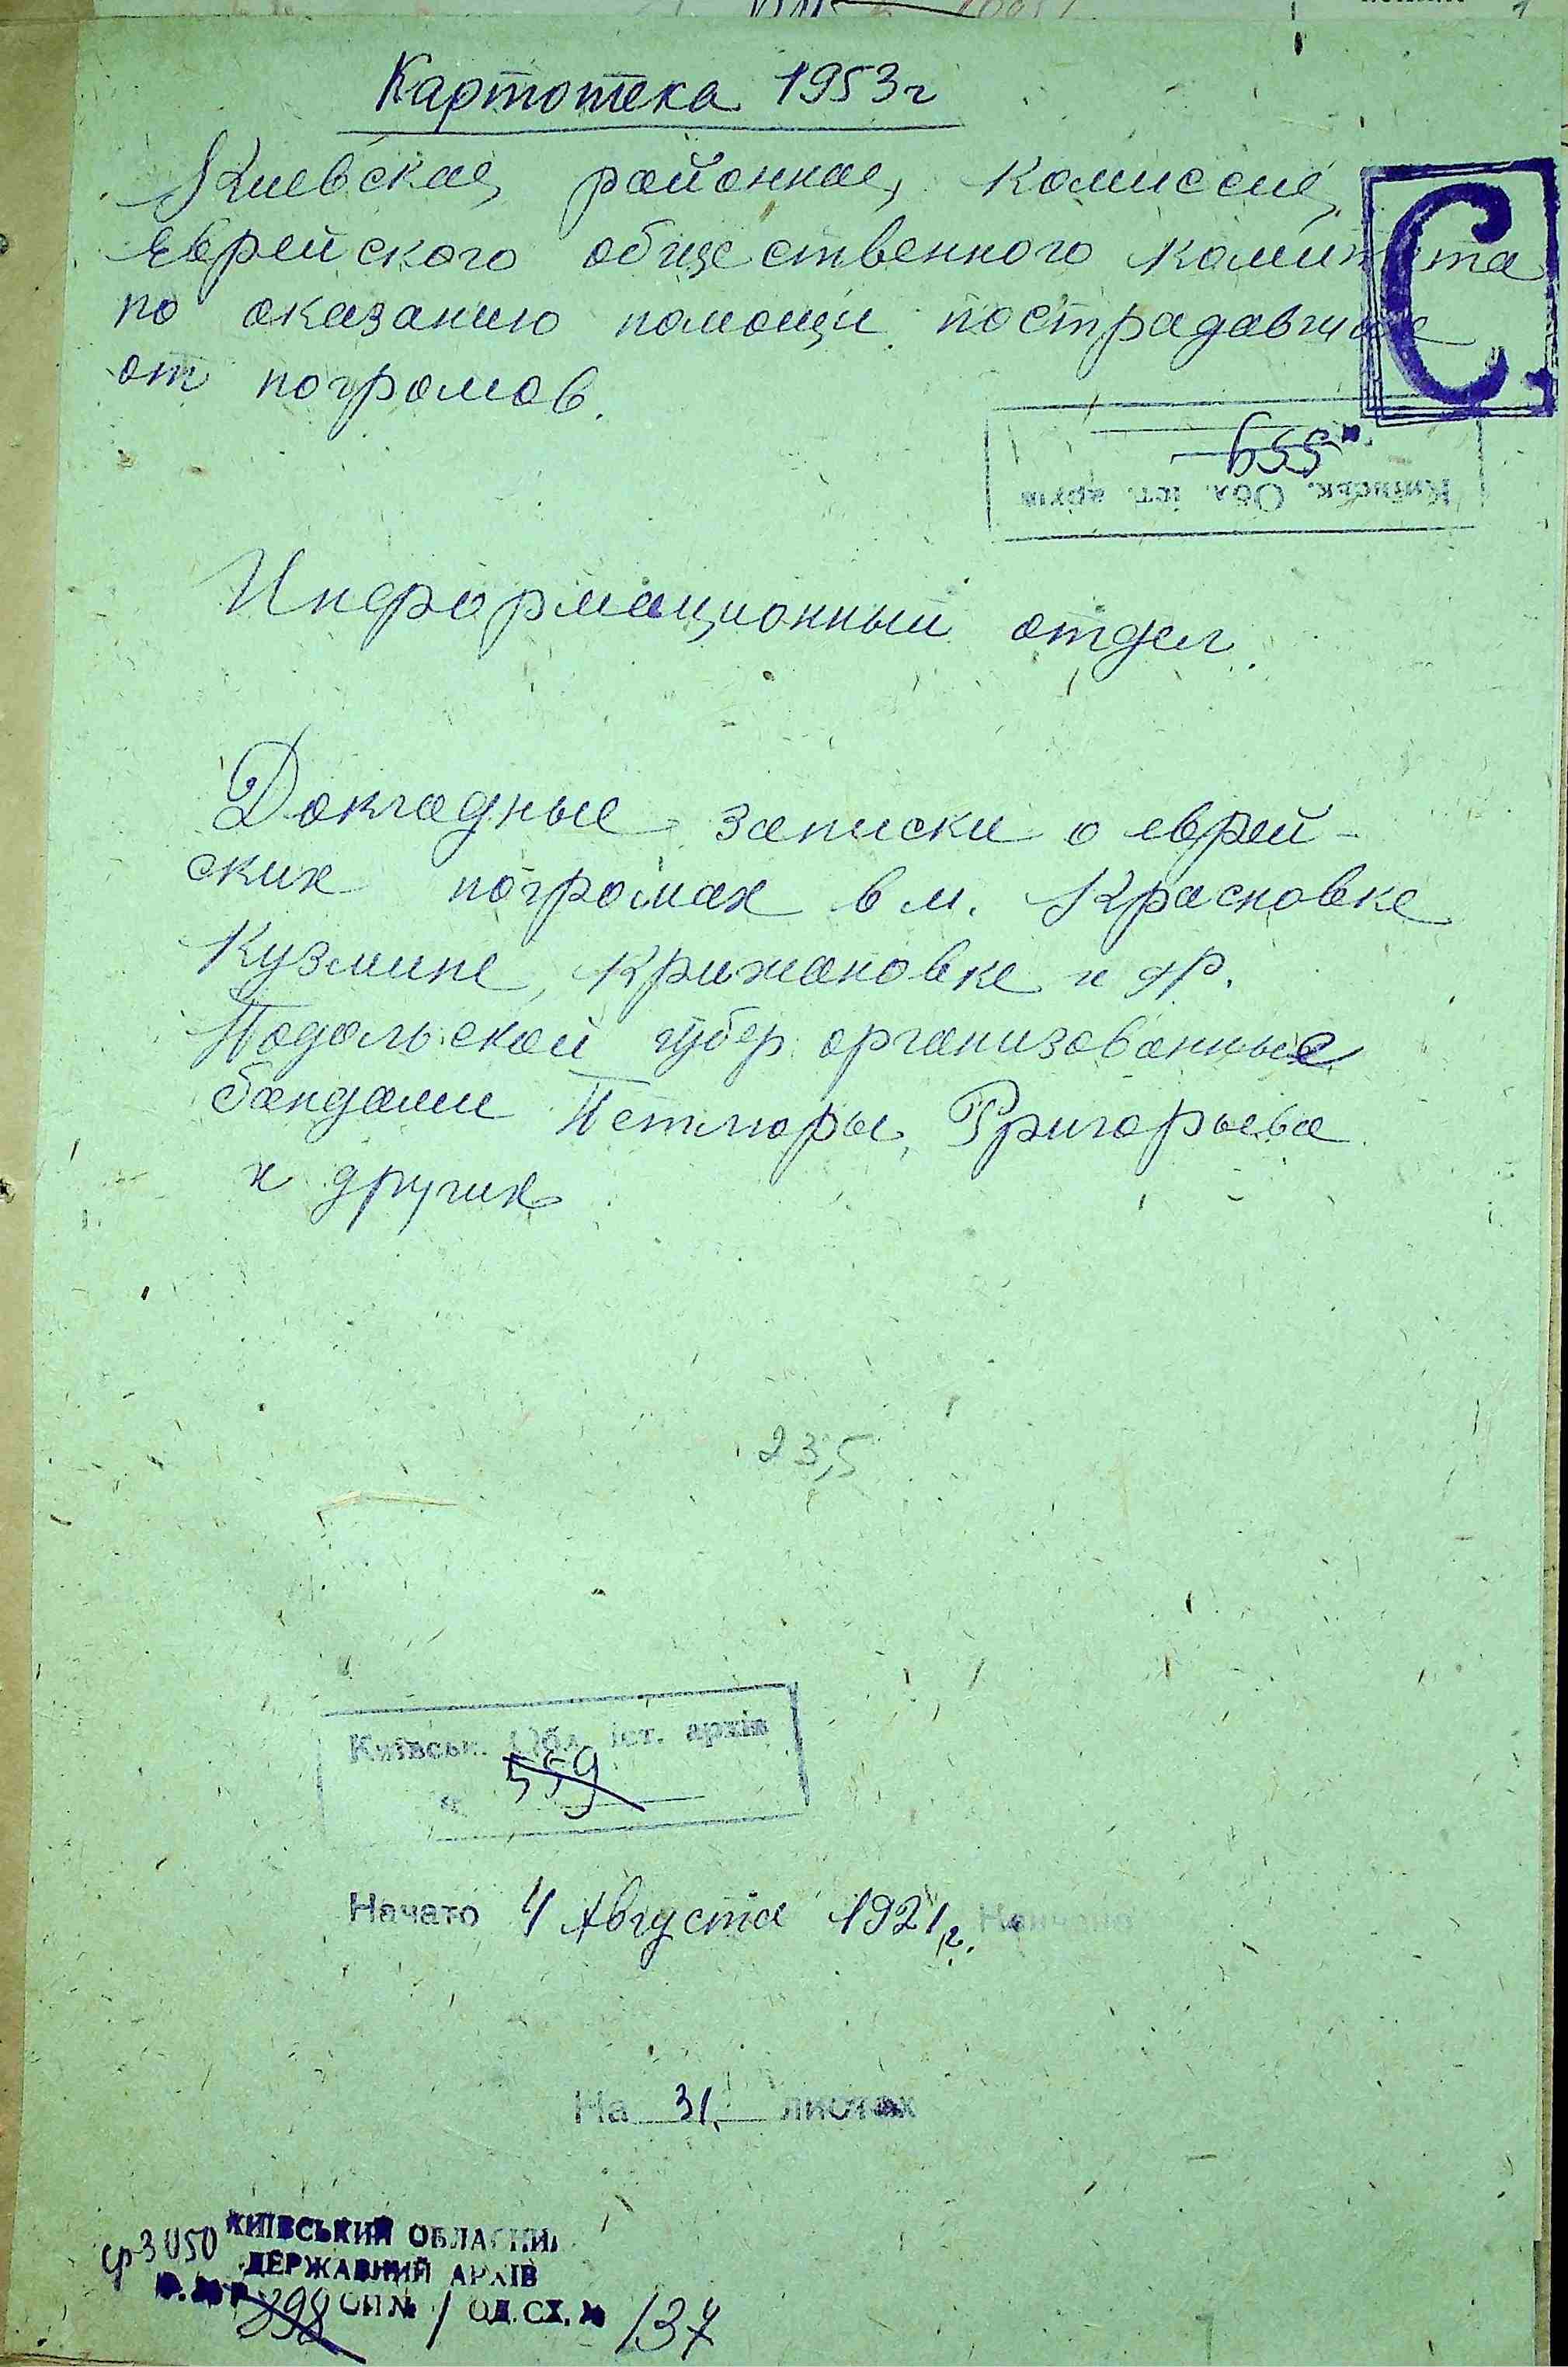 Картотека 1953г
Киевская районная комиссия
Еврейского общественного комитета
по оказанию помощи пострадавшим
от погромов.
С
559
Київськ. Обл. іст. архів
Информационный отдел.
Докладные записки о еврей-
ских погромах в м. Красновке
Кузмине, Крижановке и др.
Подольской губер организованные
бандами Петлюры, Григорьева
и других
23,5
Київськ. Обл. іст. архів
559
Начато 4 Августа 1921 г. Кончено
На 31 листах
КИЇВСЬКИЙ ОБЛАСНИЙ
ф3050 ДЕРЖАВНИЙ АРХІВ
898 ОП № 1 ОД. СХ. № 137